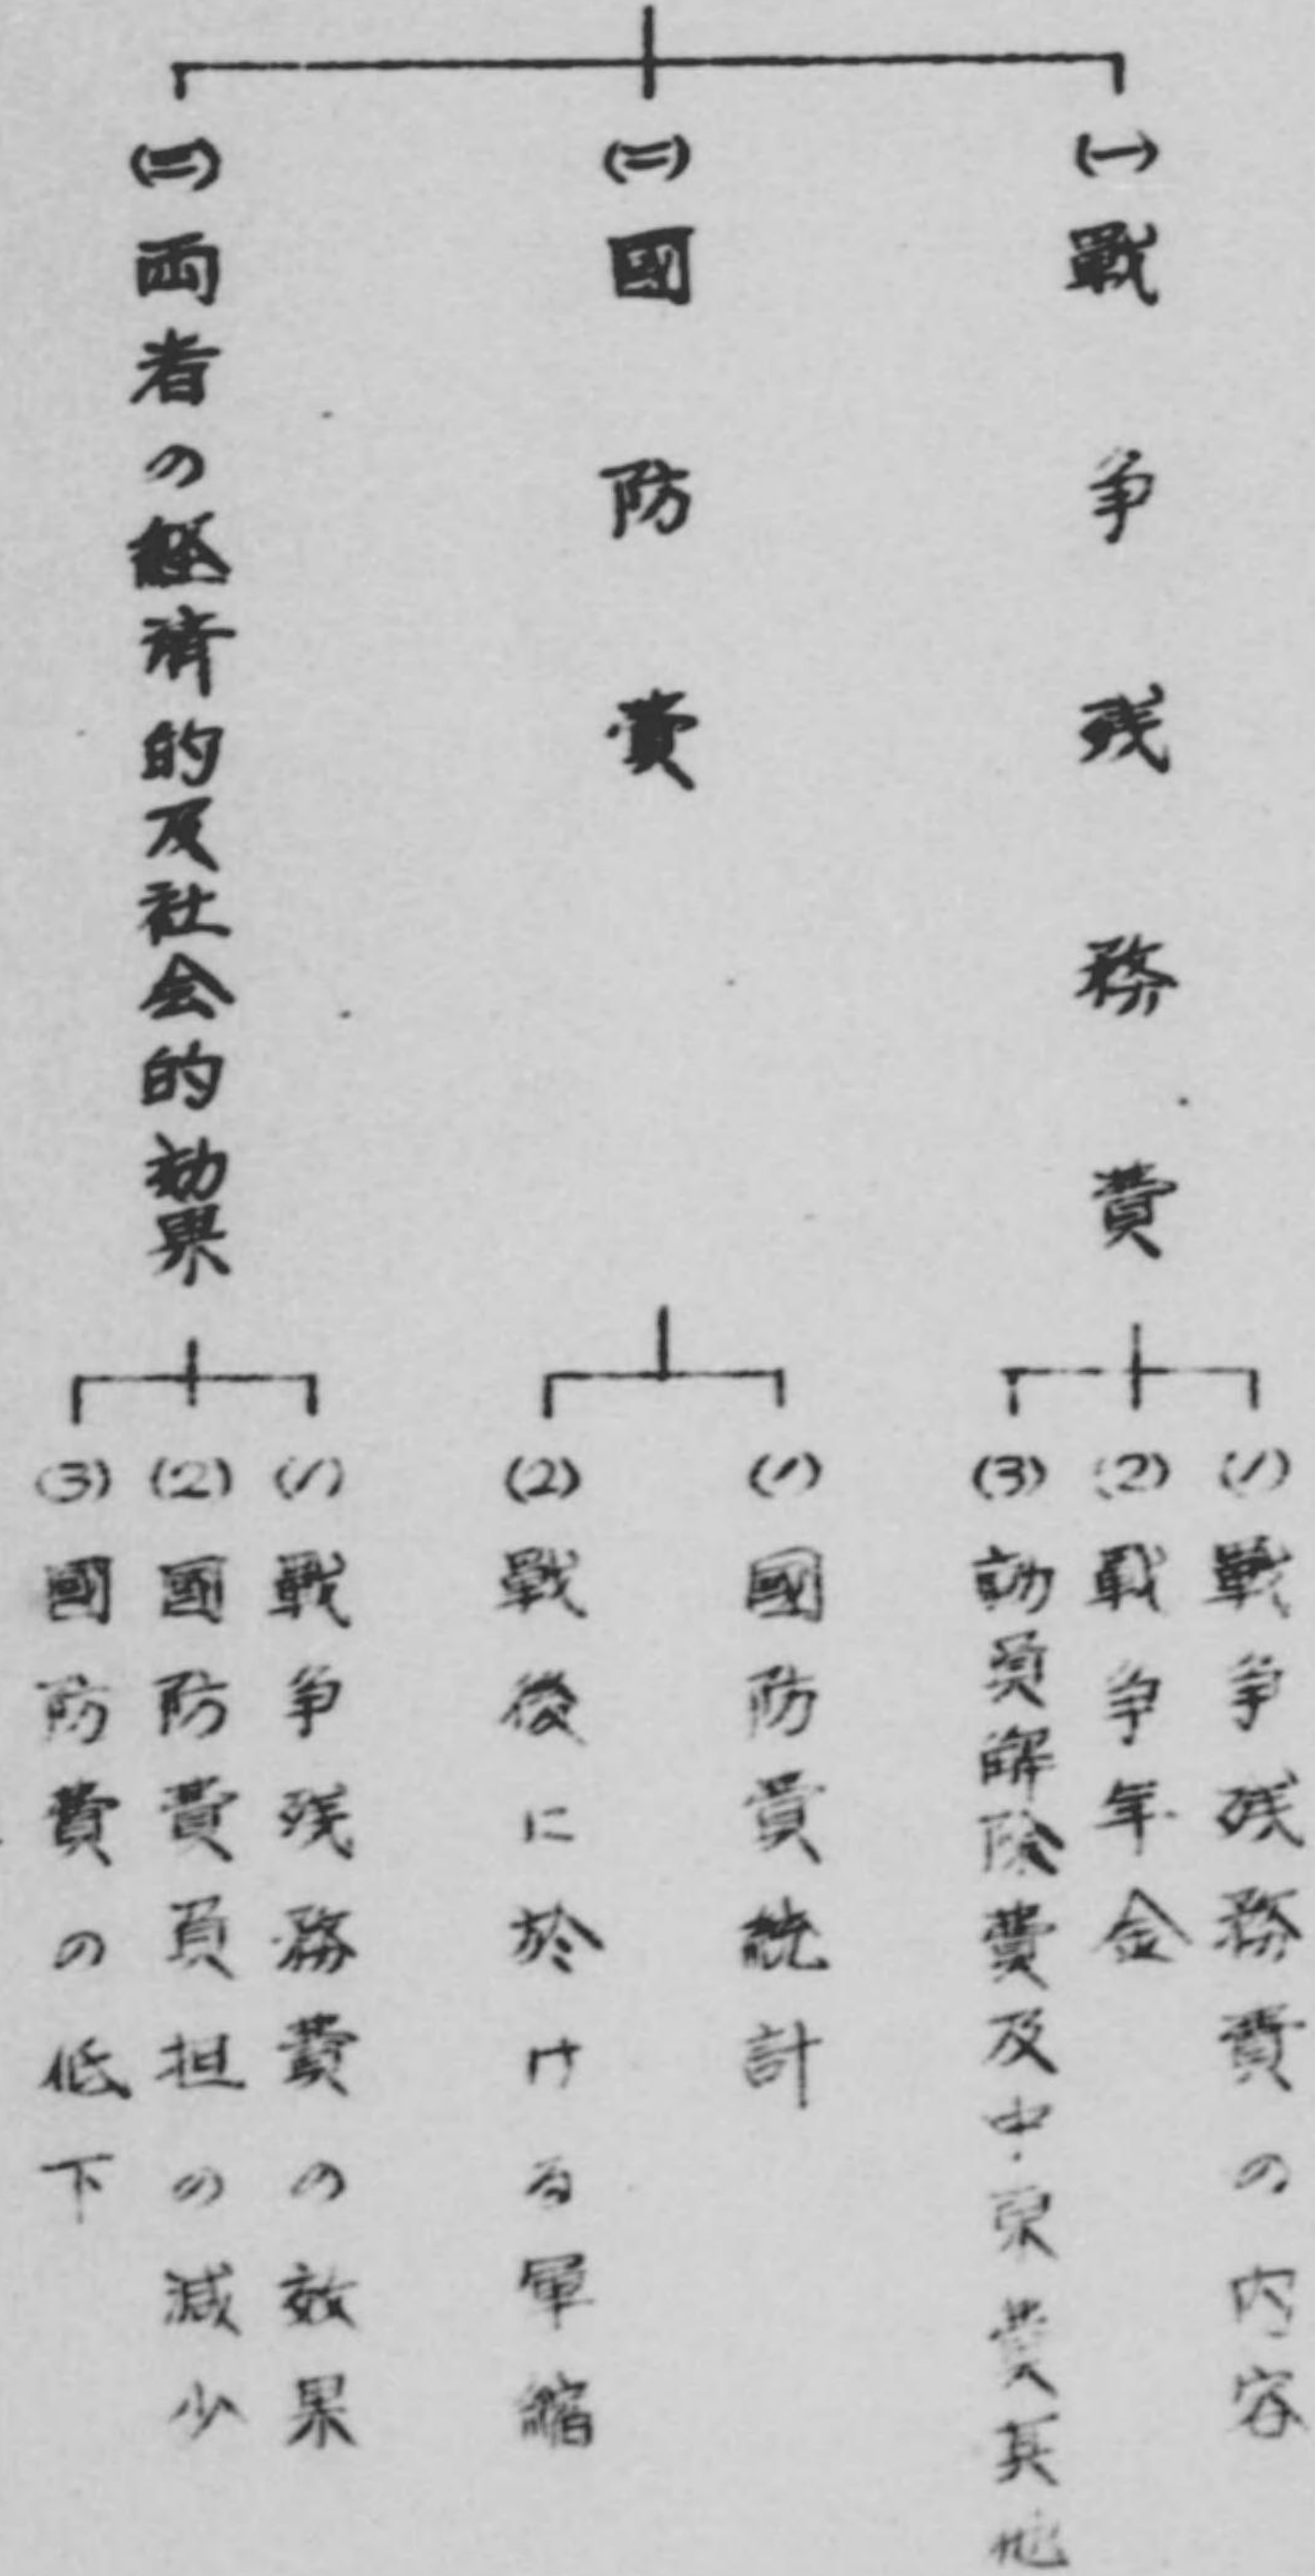 (一)戰争残務費
(1)戰争残務費の内容
(2)戰争年金
(3)動員解除費及中東費其他
(二)國防費
(1)國防費統計
(2)戰後に於ける軍縮
(三)両者の経済的及社会的効果
(1)戰争残務費の效果
(2)國防費負担の減少
(3)國防費の低下